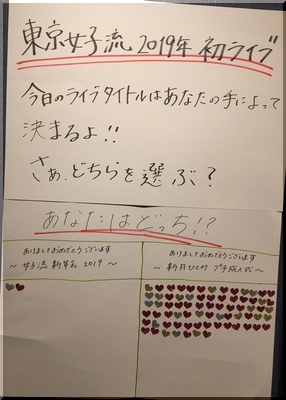 東京女子流 2019年 初ライブ
今日のライブタイトルはあなたの手によって
決まるよ!!
さぁ、どちらを選ぶ?
あなたはどっち!?
あけましておめでとうございます
〜 女子流 新年会 2019 〜
あけましておめでとうございます
〜 新井ひとみ プチ成人式 〜